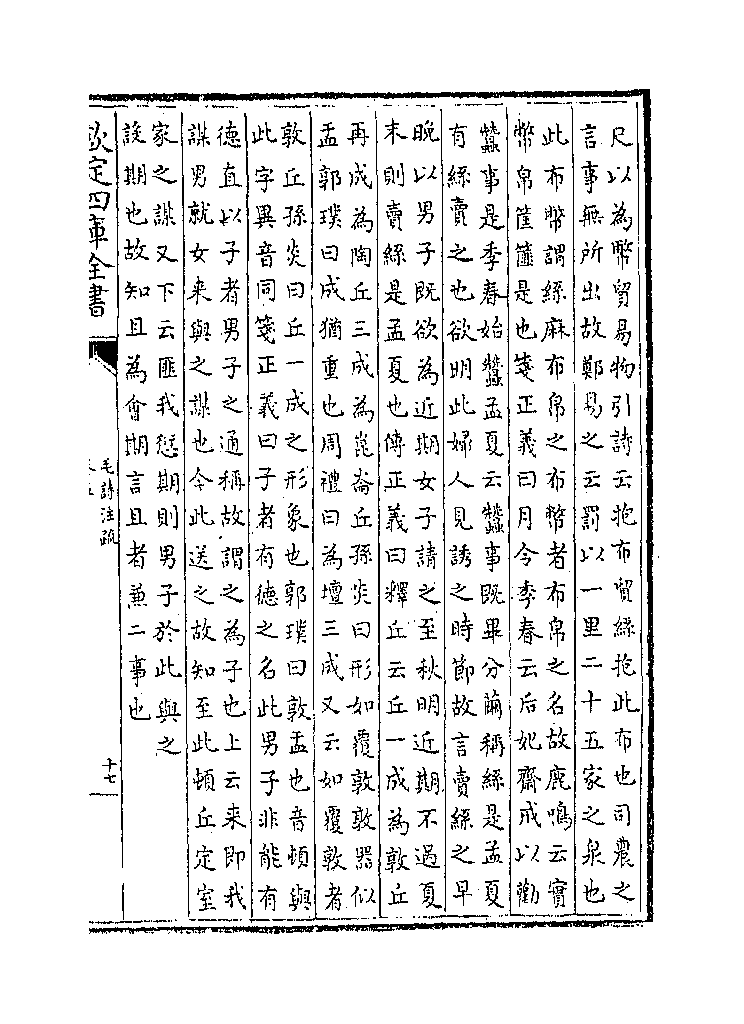 尺以為幣貿易物引詩云抱布貿絲抱此布也司農之
言事無所出故鄭易之云罰以一里二十五家之泉也
此布幣謂絲麻布帛之布幣者布帛之名故鹿鳴云實
幣帛筐篚是也箋正義曰月令季春云后妃齋戒以勸
蠶事是季春始蠶孟夏云蠶事既畢分繭稱絲是孟夏
有絲賣之也欲明此婦人見誘之時節故言賣絲之早
晚以男子既欲為近期女子請之至秋明近期不過夏
末則賣絲是孟夏也傳正義曰釋丘云丘一成為敦丘
再成為陶丘三成為崑崙丘孫炎曰形如覆敦敦器似
盂郭璞曰成猶重也周禮曰為壇三成又云如覆敦者
敦丘孫炎曰丘一成之形象也郭璞曰敦盂也音頓與
此字異音同箋正義曰子者有德之名此男子非能有
德直以子者男子之通稱故謂之為子也上云来即我
謀男就女来與之謀也今此送之故知至此頓丘定室
家之謀又下云匪我愆期則男子於此與之
設期也故知且為會期言且者兼二事也
欽定四庫全書
毛詩注疏
十七